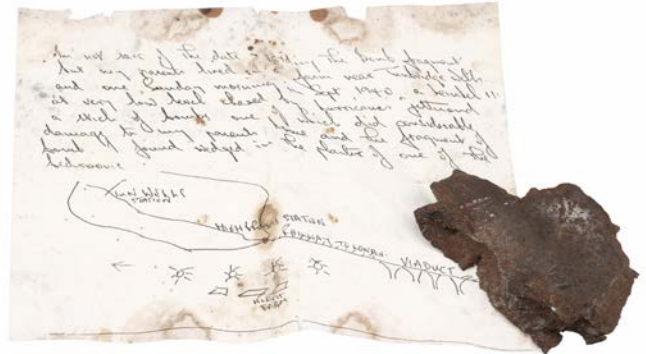 I'm not sure of the date regarding the bomb fragment
but my parents lived in a farm near Tunbridge Wells
and one Sunday morning in Sept 1940 a Heinkel 111
at very low level chased by hurricanes jettisoned
a stick of bombs one of which did considerable
damage to my parents home and the fragment of
bomb I found wedged in the plaster of one of the
bedrooms
TUN WELLS
STATION
HIGH BROOMS STATION
RAILWAY TO LONDON
VIADUCT
FARM